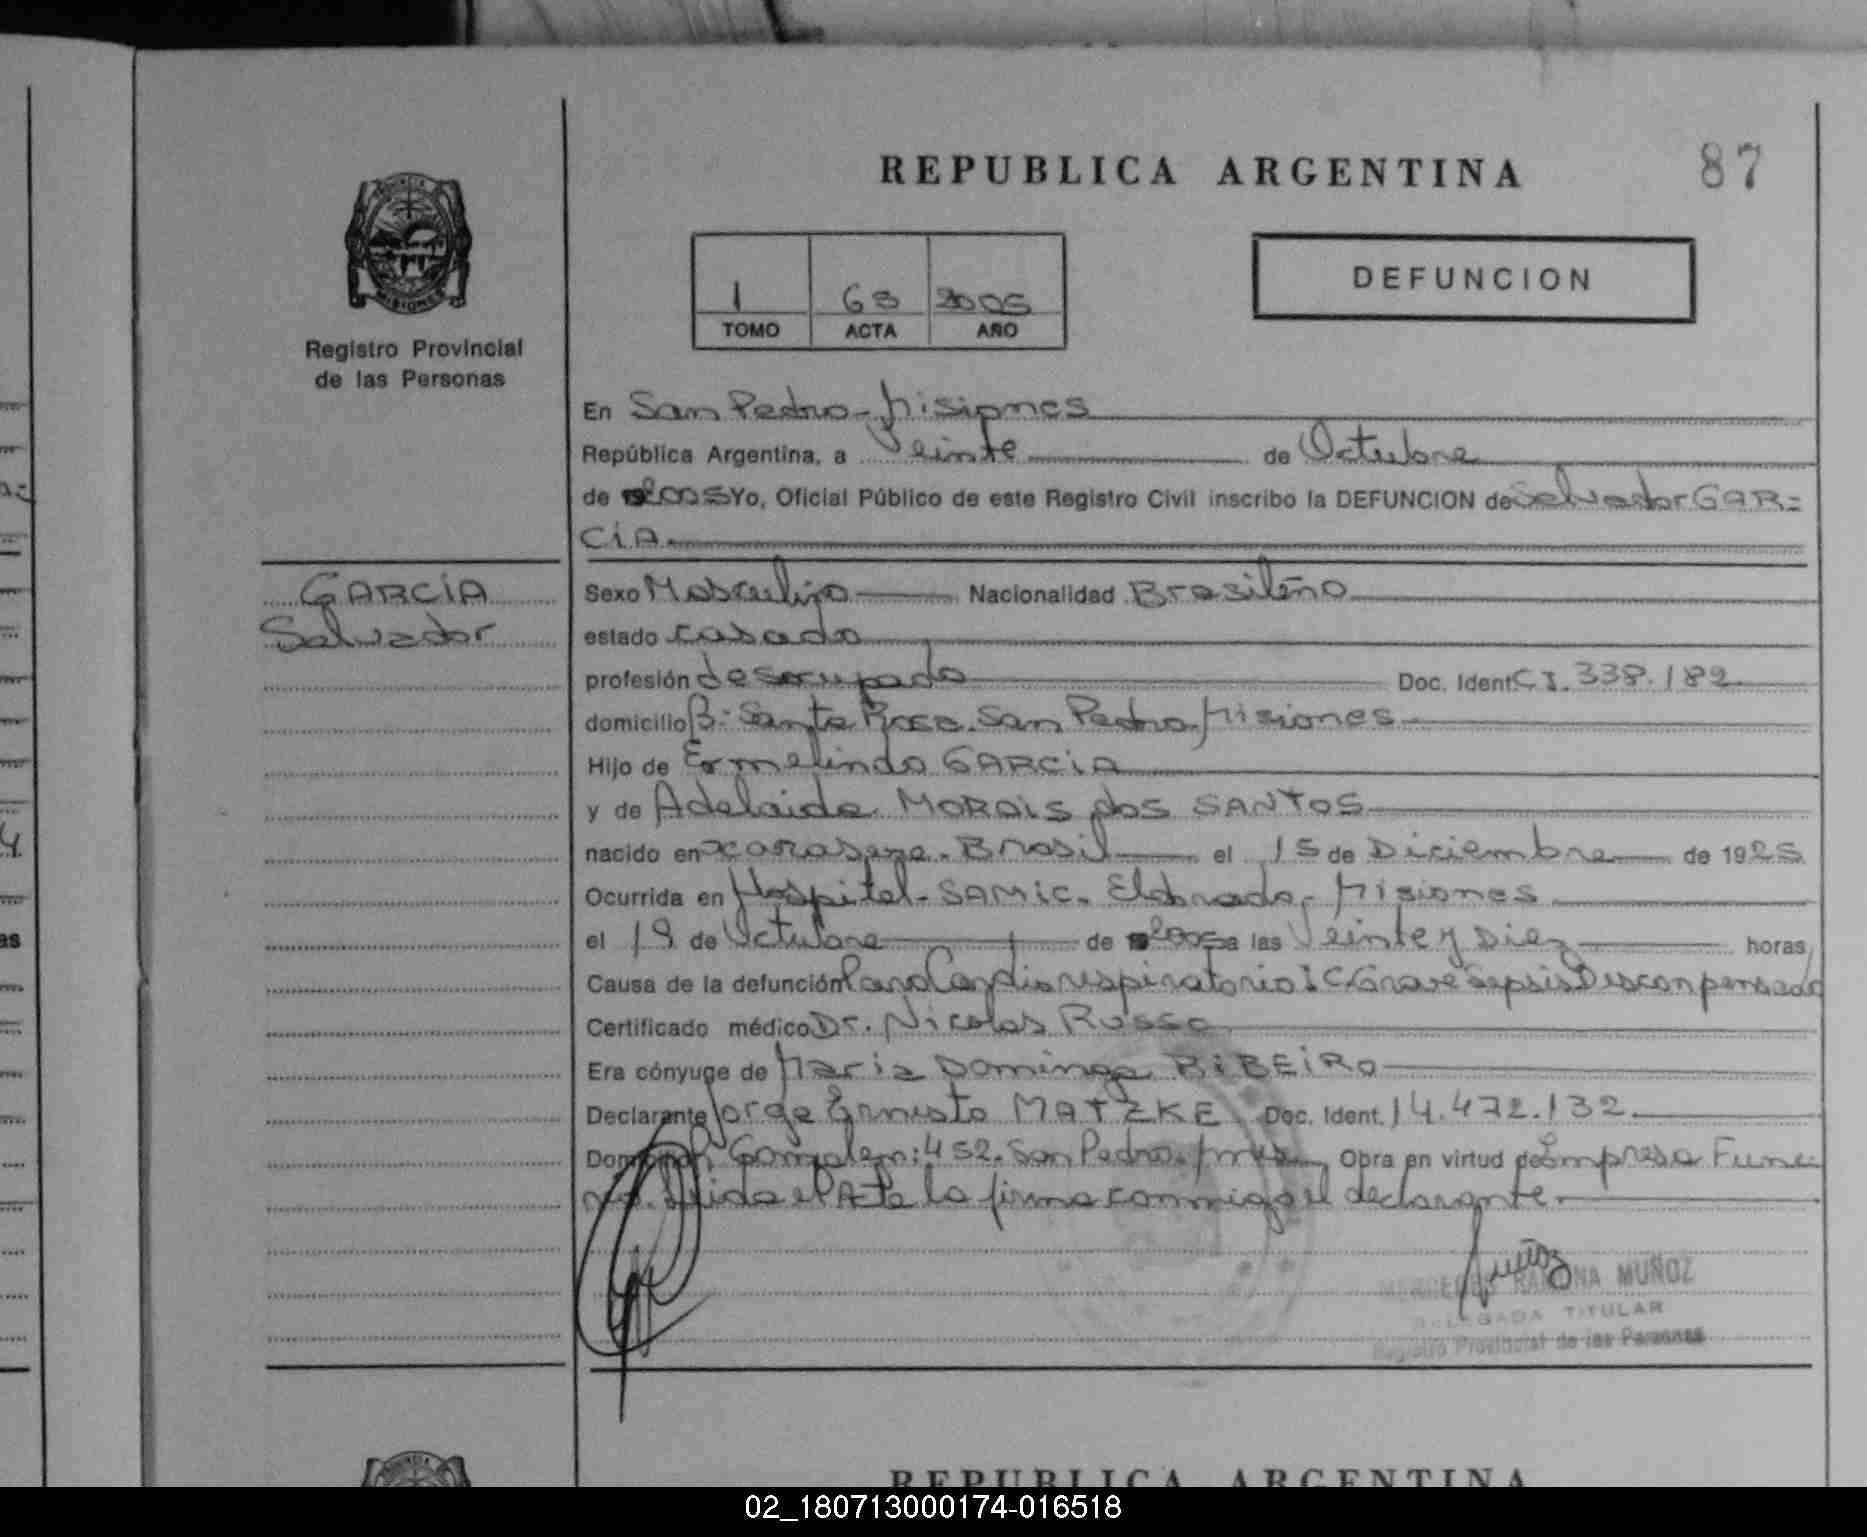 REPUBLICA ARGENTINA
87
DEFUNCION
1 63 2005
TOMO ACTA AÑO
PROVINCIA MISIONES
Registro Provincial
de las Personas
En San Pedro - Misiones
República Argentina, a Veinte de Octubre
de 2005 Yo, Oficial Público de este Registro Civil inscribo la DEFUNCION de Salvador GAR=
CÍA.
GARCÍA
Salvador
Sexo Masculino Nacionalidad Brasileño
estado casado
profesión desocupado Doc. Ident. C I. 338.182
domicilio B: Santa Rosa. San Pedro, Misiones
Hijo de Ermelindo GARCÍA
y de Adelaida MORAIS dos SANTOS
nacido en Brasil el 15 de Diciembre de 1925
Ocurrida en Hospital - SAMIC. Eldorado, Misiones
el 19 de Octubre de 2005 a las Veinte y Diez horas
Causa de la defunción Paro Cardiorespiratorio I C. Grave Sepsis Desconpensado
Certificado médico Dr. Nicolas Russo
Era cónyuge de Maria Dominga RIBEIRO
Declarante Jorge Ernesto MATZKE Doc. Ident. 14.472.132
452. San Pedro. Obra en virtud de Empresa Fune
Leida el Acta la firma conmigo el declarante.
MERCEDES RAMONA MUÑOZ
DELEGADA TITULAR
Registro Provincial de las Personas
REPUBLICA ARGENTINA
02_180713000174-016518